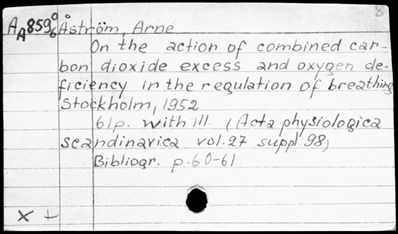 AA859 06 Åström, Arne
On the action of combined car-
bon dioxide excess and oxygen de-
ficiency in the regulation of breathing
Stockholm, 1952
61p. with ill. (Acta physiologica
scandinavica vol. 27 suppl. 98)
Bibliogr. p. 60-61
x +